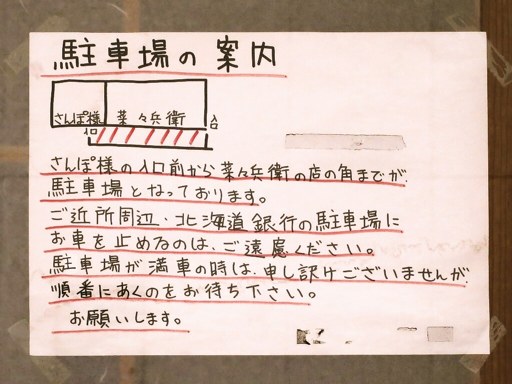 駐車場の案内
さんぽ様 菜々兵衛
入口
さんぽ様の入口前から菜々兵衛の店の角までが
駐車場となっております。
ご近所周辺・北海道銀行の駐車場に
お車を止めるのは、ご遠慮ください。
駐車場が満車の時は、申し訳ございませんが
順番にあくのをお待ち下さい。
お願いします。